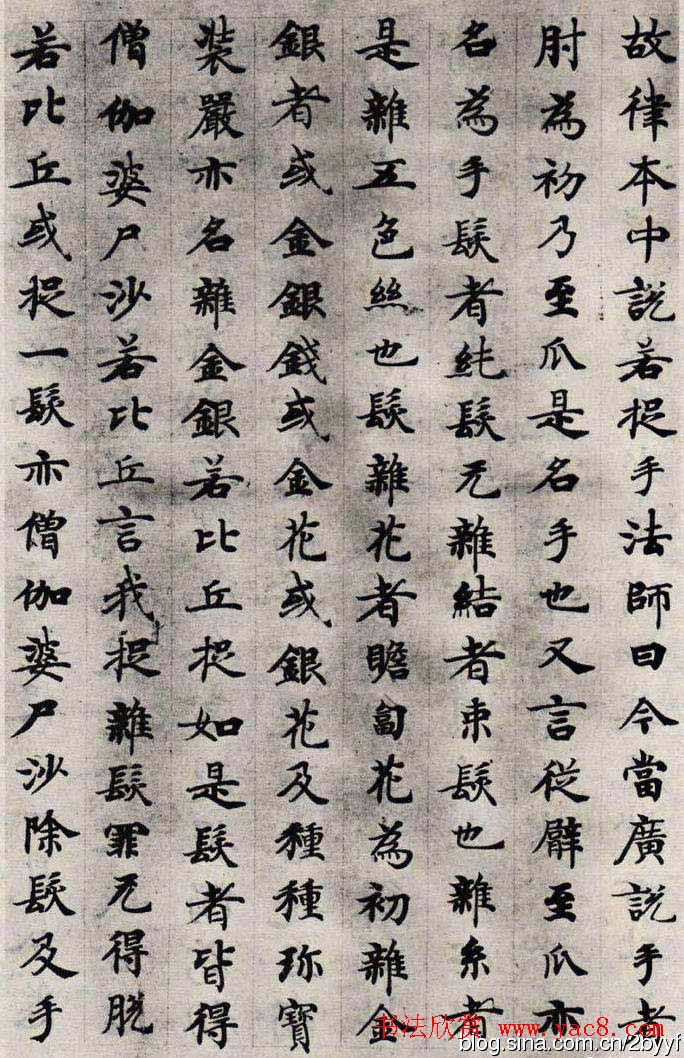 故律本中說若捉手法師曰今當廣說手者
肘為初乃至爪是名手也又言從臂至爪亦
名為手髮者純髮无雜結者束髮也雜糸者
是雜五色絲也髮雜花者瞻匐花為初雜金
銀者或金銀錢或金花或銀花及種種珎寶
裝嚴亦名雜金銀若比丘捉如是髮者皆得
僧伽婆尸沙若比丘言我捉雜髮罪无得脫
若比丘或捉一髮亦僧伽婆尸沙除髮及手
书法欣赏 www.yac8.com
blog.sina.com.cn/2byyf